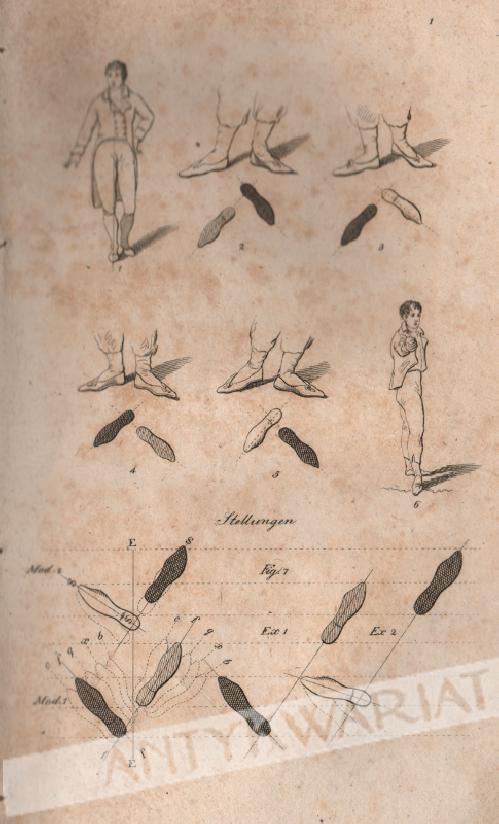 1
1
2
3
4
5
6
Stellungen
E
Fig: 7
Mod. 2
a
b
Ex 1
Ex 2
e
f
g
Mod. 1
E
ANTYKWARIAT